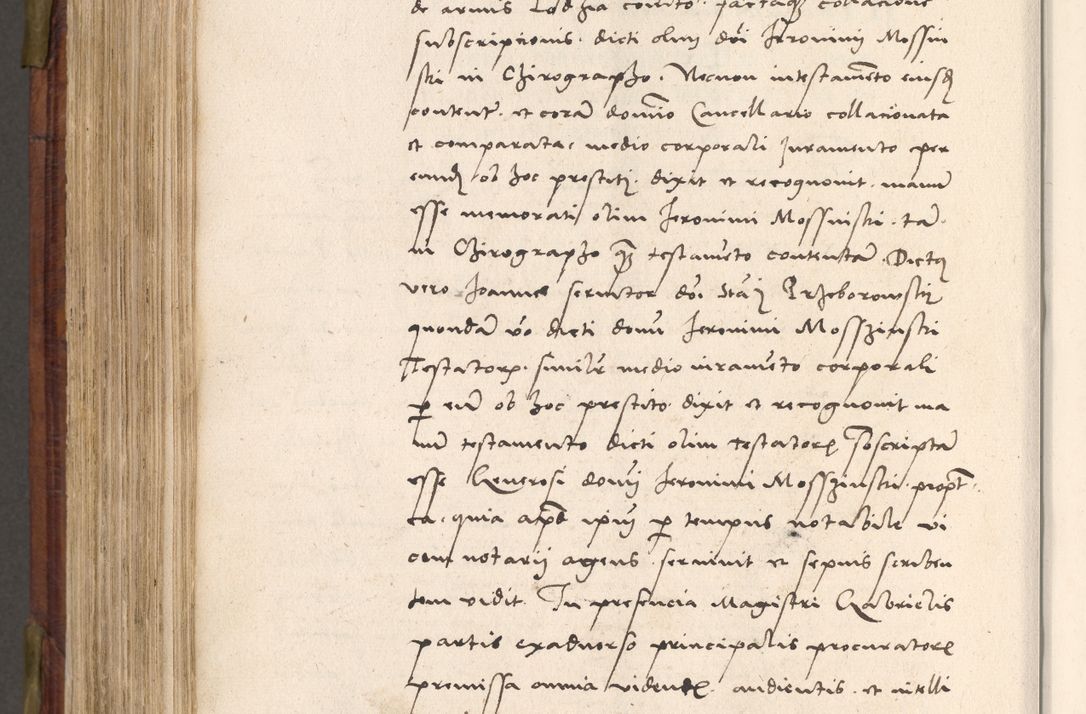 de armis Lodzia coircito. factaqz collacione
subscriptionis. dicti olim dni Jeronimi Mossin
ski in Chirographo. Necnon in testamēto eiusdē
content. et corā domino Cancellario collacionata
et comparata. medio corporali Juramento per
eundē ob hoc prestiti. dixit et recognouit. manū
esse memorati olim Jeronimi Mossinski. tā.
in Chirographo qz testamēto contentā. Dictus
vero Joannes seruitor dni Stāi Przeborowskij
quondā vo dicti domini Jeronimi Mosszinski
Testatoris. similr medio iuramēto corporali
p eū ob hoc prestito dixit et recognouit ma
nū testamento dicti olim testatoris subscriptā
esse Generosi domini Jeronimi Mosszinski. propt
ea. quia apd ipm p tempus notabile vi
cem notarij agens. seruiuit et sepius scriben
tem vidit. In presencia Magistri Gabrielis
partis exaduerso principalis procuratoris
premissa omnia videntis. audientis. et intelli